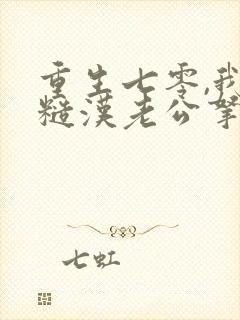 重生七零,我
糙汉老公掌
七虹